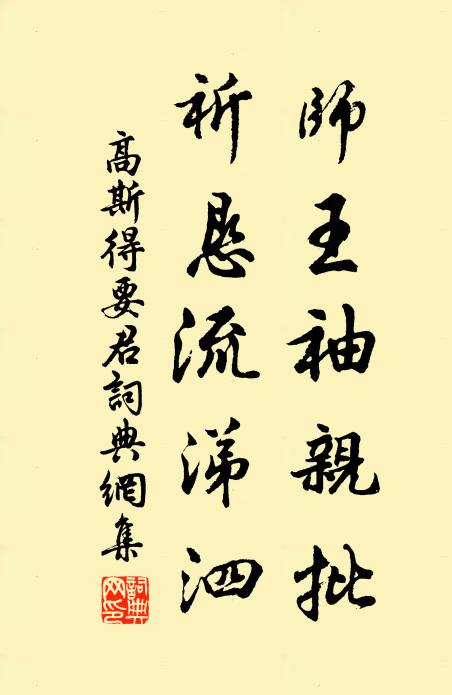 師王袖親批
祈恳流涕泗
髙斯得要君詞典網集
詞典
网印